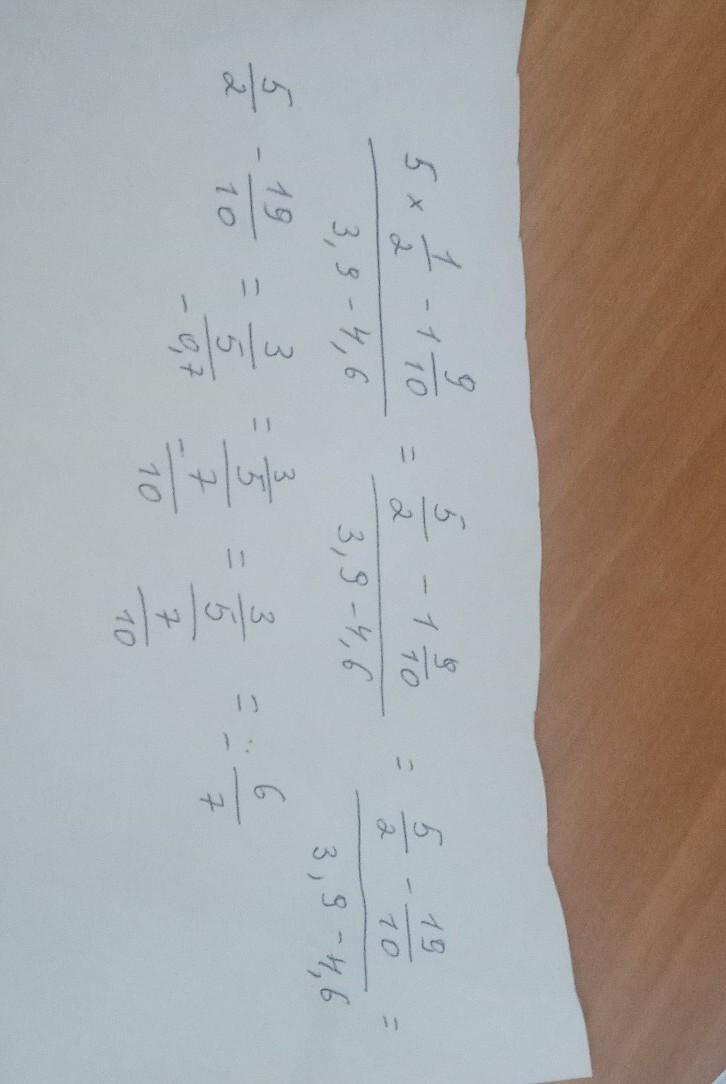 (5 × 1/2 - 1 9/10)/(3,9 - 4,6) = (5/2 - 1 9/10)/(3,9 - 4,6) = (5/2 - 19/10)/(3,9 - 4,6) =
5/2 - 19/10 = (3/5)/(-0,7) = (3/5)/(-7/10) = (3/5)/(7/10) = - 6/7